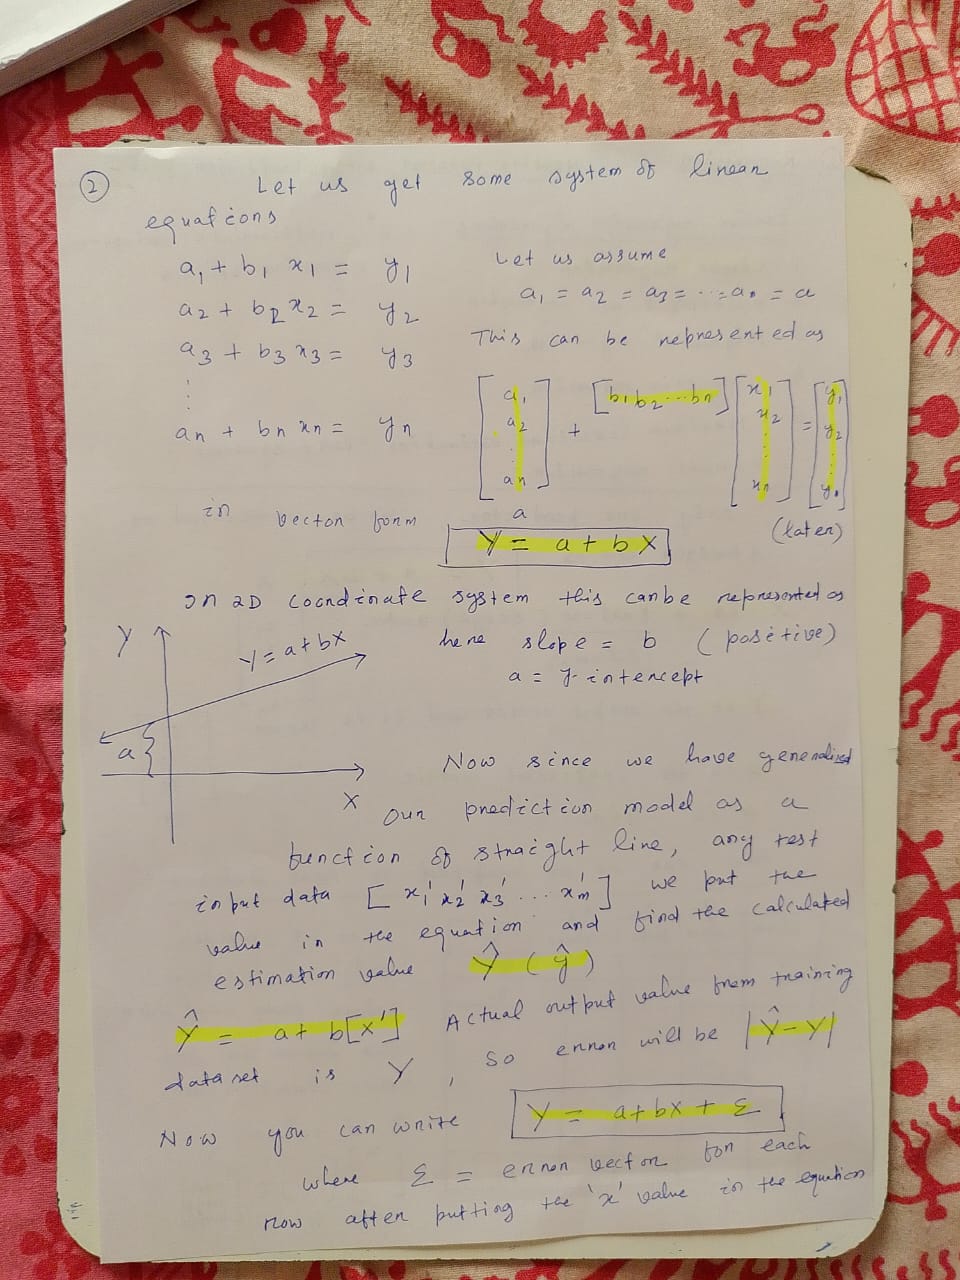 2
Let us get some system of linear
equations
a₁ + b₁ x₁ = y₁
a₂ + b₂ x₂ = y₂
a₃ + b₃ x₃ = y₃
⋮
aₙ + bₙ xₙ = yₙ
Let us assume
a₁ = a₂ = a₃ = ... = aₙ = a
This can be represented as
[a₁ a₂ ⋮ aₙ] + [b₁ b₂ ... bₙ] [x₁ x₂ ⋮ xₙ] = [y₁ y₂ ⋮ yₙ]
a
(later)
in vector form
Y = a + bX
In 2D coordinate system this can be represented as
Y
Y = a + bX
a
X
here slope = b (positive)
a = y-intercept
Now since we have generalized
our prediction model as a
function of straight line, any test
input data [x₁' x₂' x₃' ... xₘ'] we put the
value in the equation and find the calculated
estimation value Ŷ (ŷ)
Ŷ = a + b[X'] Actual output value from training
data set is Y, So error will be |Ŷ - Y|
Now you can write Y = a + bX + Ɛ
where Ɛ = error vector for each
row after putting the 'x' value in the equation